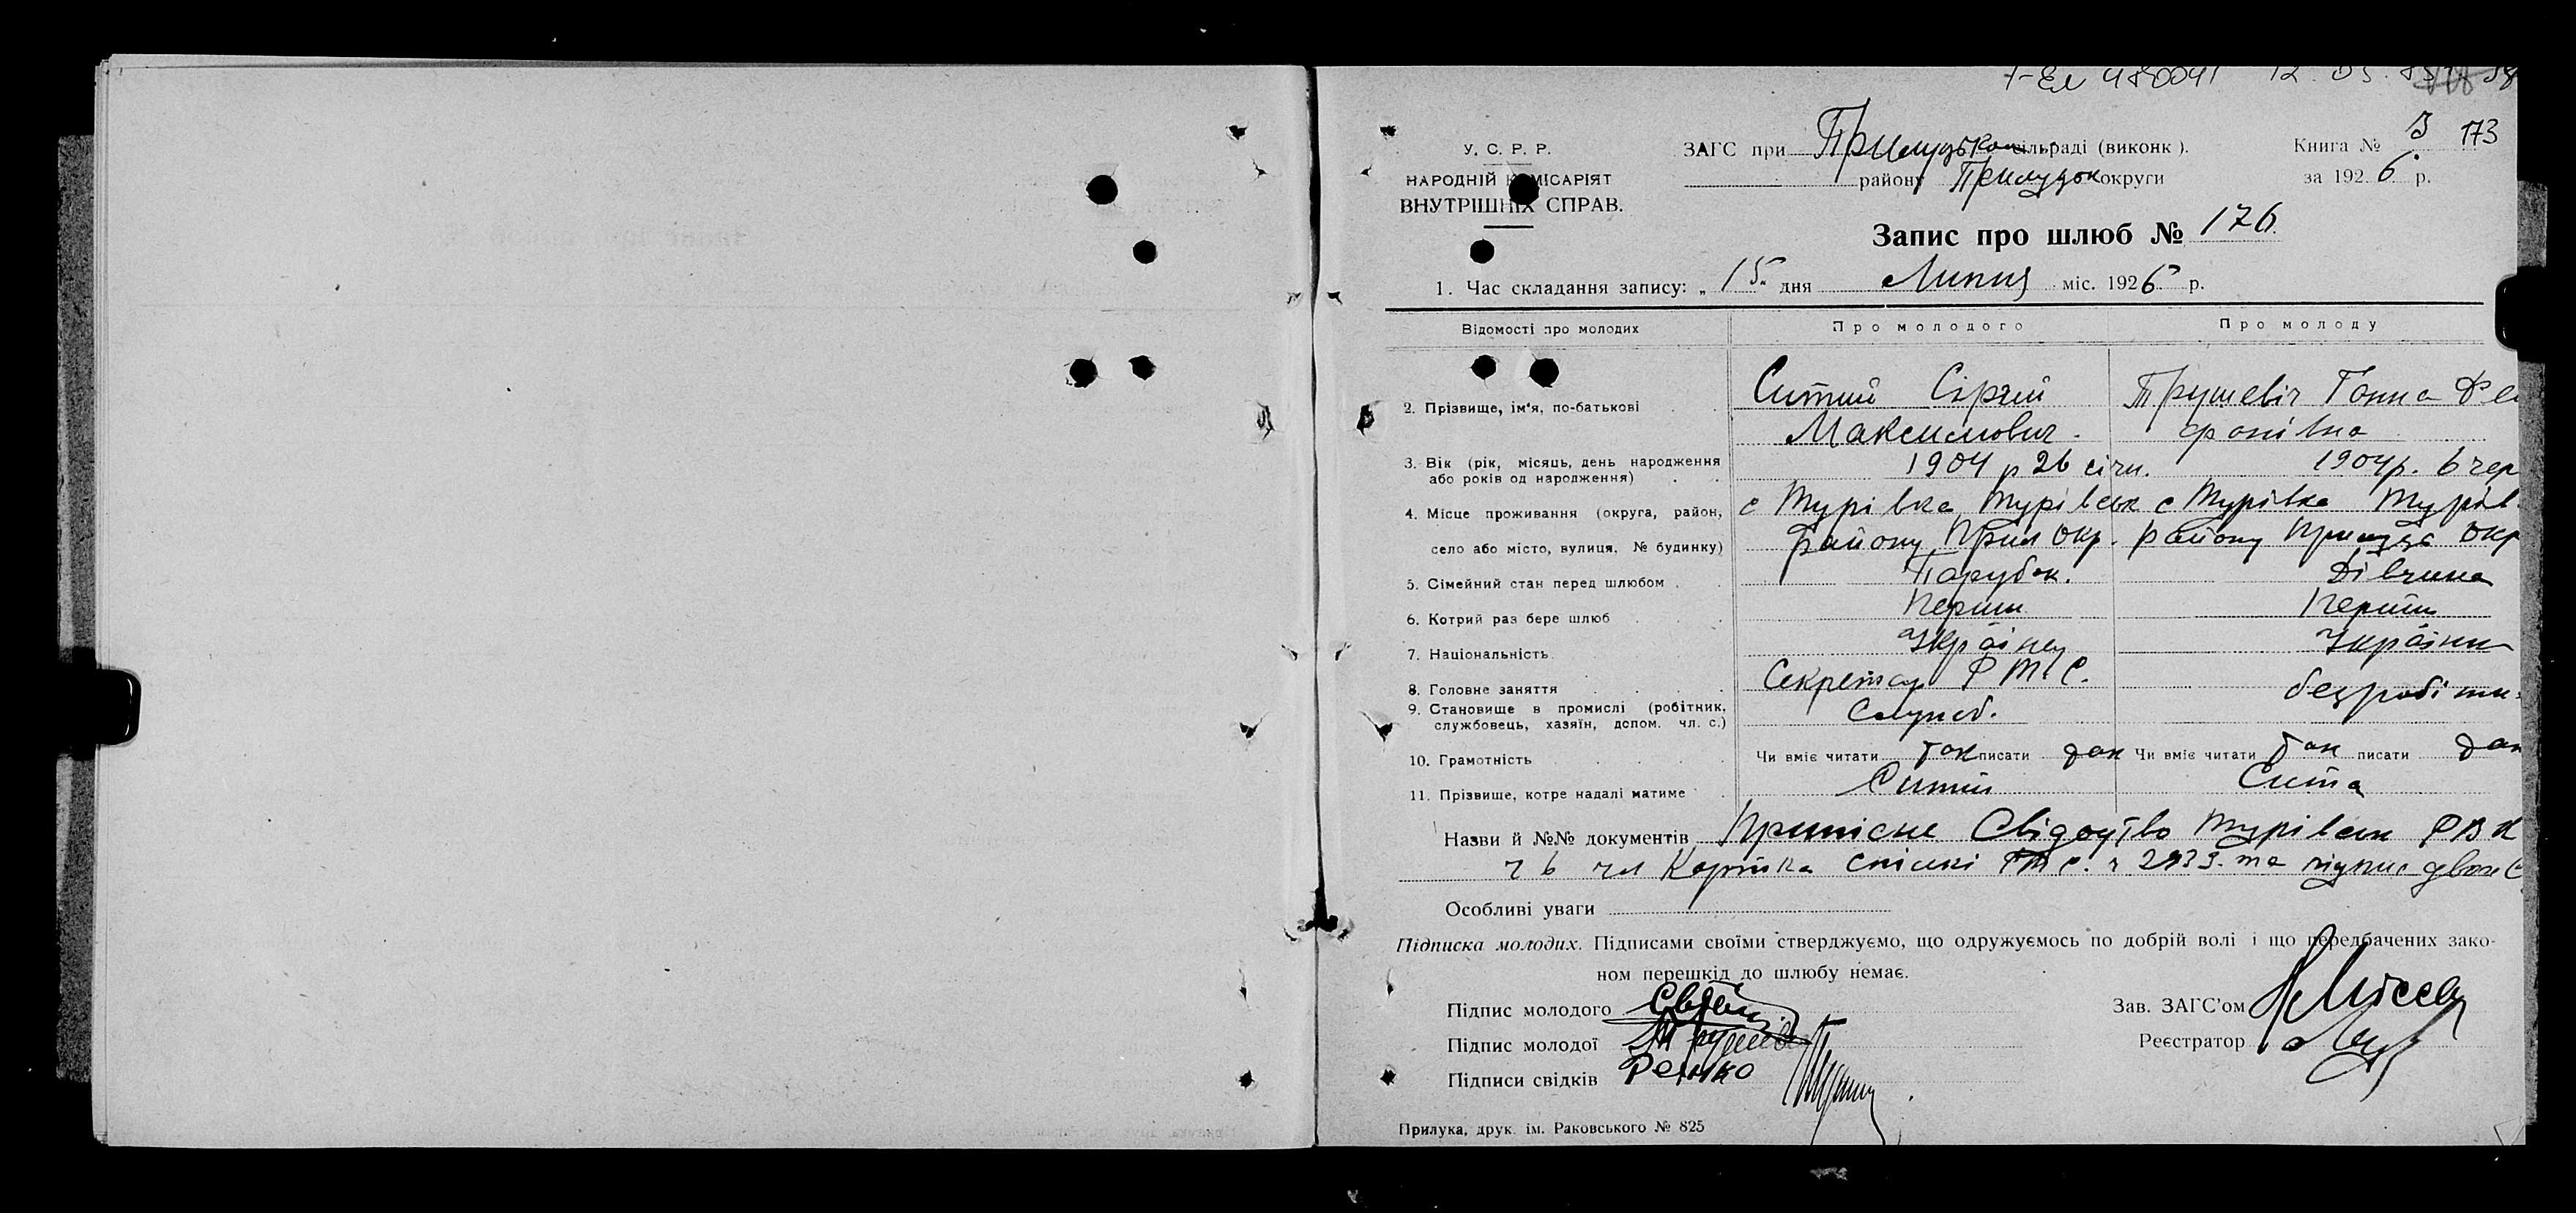 480041 12. 05.
У. С. Р. Р.
НАРОДНІЙ КОМІСАРІЯТ
ВНУТРІШНІХ СПРАВ.
ЗАГС при Прилуцьком сільраді (виконк ).
району Прилуцьк округи
Книга № 3 173
за 1926 р.
Запис про шлюб № 176
1. Час складання запису: „ 15 " дня Липня міс. 1926 р.
Відомості про молодих Про молодого Про молоду
2. Прізвище, ім'я, по-батькові Ситий Сіргій Трушевіч Ганна
Максимович.
3. Вік (рік, місяць, день народження 1904 р 26 січн. 1904р. 6 чер
або років од народження)
4. Місце проживання (округа, район, с Турівка Турівськ с Турівка Турів
село або місто, вулиця, № будинку) району Прил Окр. району Окр
5. Сімейний стан перед шлюбом Парубок. Дівчина
6. Котрий раз бере шлюб Перший Перший
7. Національність Українец Українк
8. Головне заняття Секретар безробітн
9. Становище в промислі (робітник, Служб.
службовець, хазяїн, допом. чл. с.)
10. Грамотність Чи вміє читати так писати так Чи вміє читати так писати так
11. Прізвище, котре надалі матиме Ситий Сита
Назви й №№ документів Приписне Свідоцтво Турівськ РВК
ч 6 Картка та підпис двох
Особливі уваги
Підписка молодих. Підписами своїми стверджуємо, що одружуємось по добрій волі і що передбачених зако-
ном перешкід до шлюбу немає.
Підпис молодого
Підпис молодої
Підписи свідків
Зав. ЗАГС'ом
Реєстратор
Прилука, друк. ім. Раковського № 825